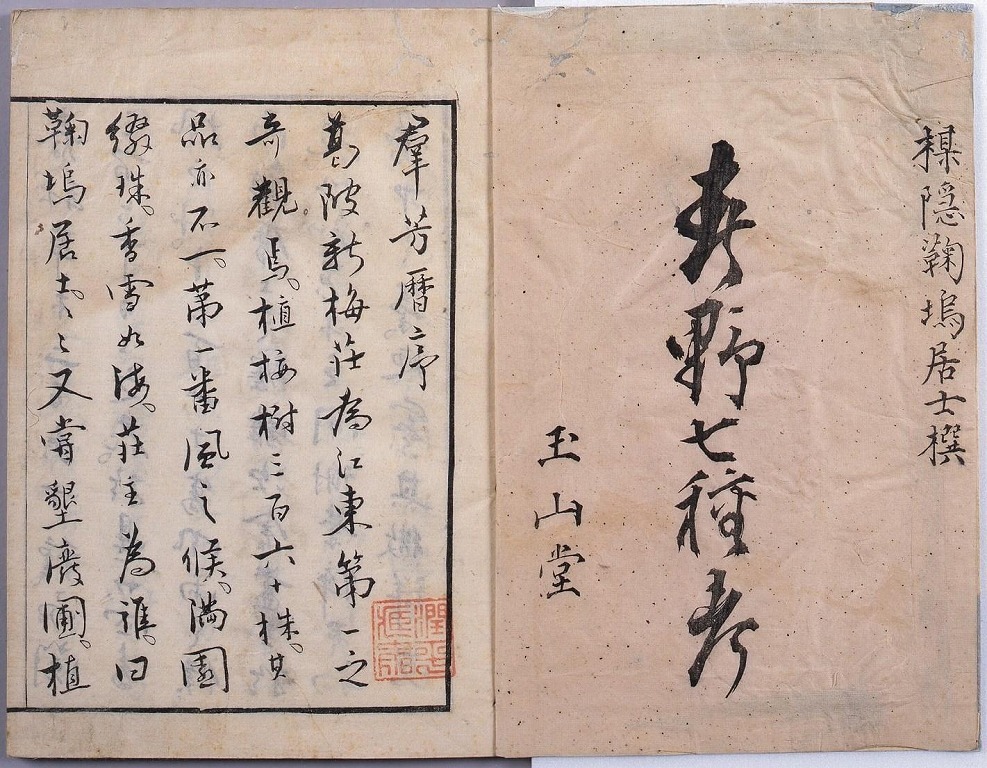 楳隠鞠塢居士撰
春野七種考
玉山堂
羣芳暦序
葛陂新梅荘為江東第一之
奇觀焉。植梅樹三百六十株。其
品亦不一。第一番風之候。満園
綴珠。香雪如海。荘主為誰。曰
鞠塢居士。々又嘗墾廢圃。植